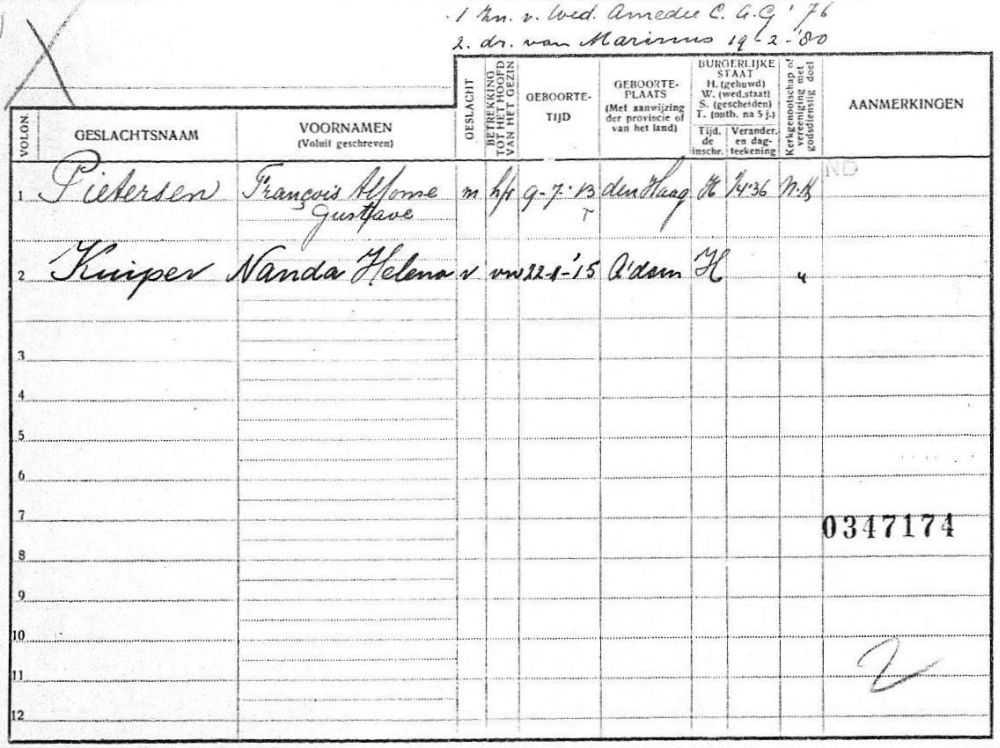 1 Zn. v. Wed. Amedée C. G. G. '76
2. dr. van Marinus 19-2-'80
VOLGN. GESLACHTSNAAM VOORNAMEN (Voluit geschreven) GESLACHT BETREKKING TOT HET HOOFD VAN HET GEZIN GEBOORTE-TIJD GEBOORTE-PLAATS (Met aanwijzing der provincie of van het land) BURGERLIJKE STAAT H. (gehuwd) W. (wed.staat) S. (gescheiden) T. (ontb. na 5 j.) Tijd. de inschr. Verander. en dag-teekening Kerkgenootschap of vereeniging met godsdienstig doel AANMERKINGEN
1 Pietersen François Alfonse m hfd 9-7-'13 den Haag H 1/4'36 N.H. ND
Gustave T
2 Kuiper Nanda Helena v vw 22-1-'15 A'dam H "
3
4
5
6
7 0347174
8
9
10
11 2
12